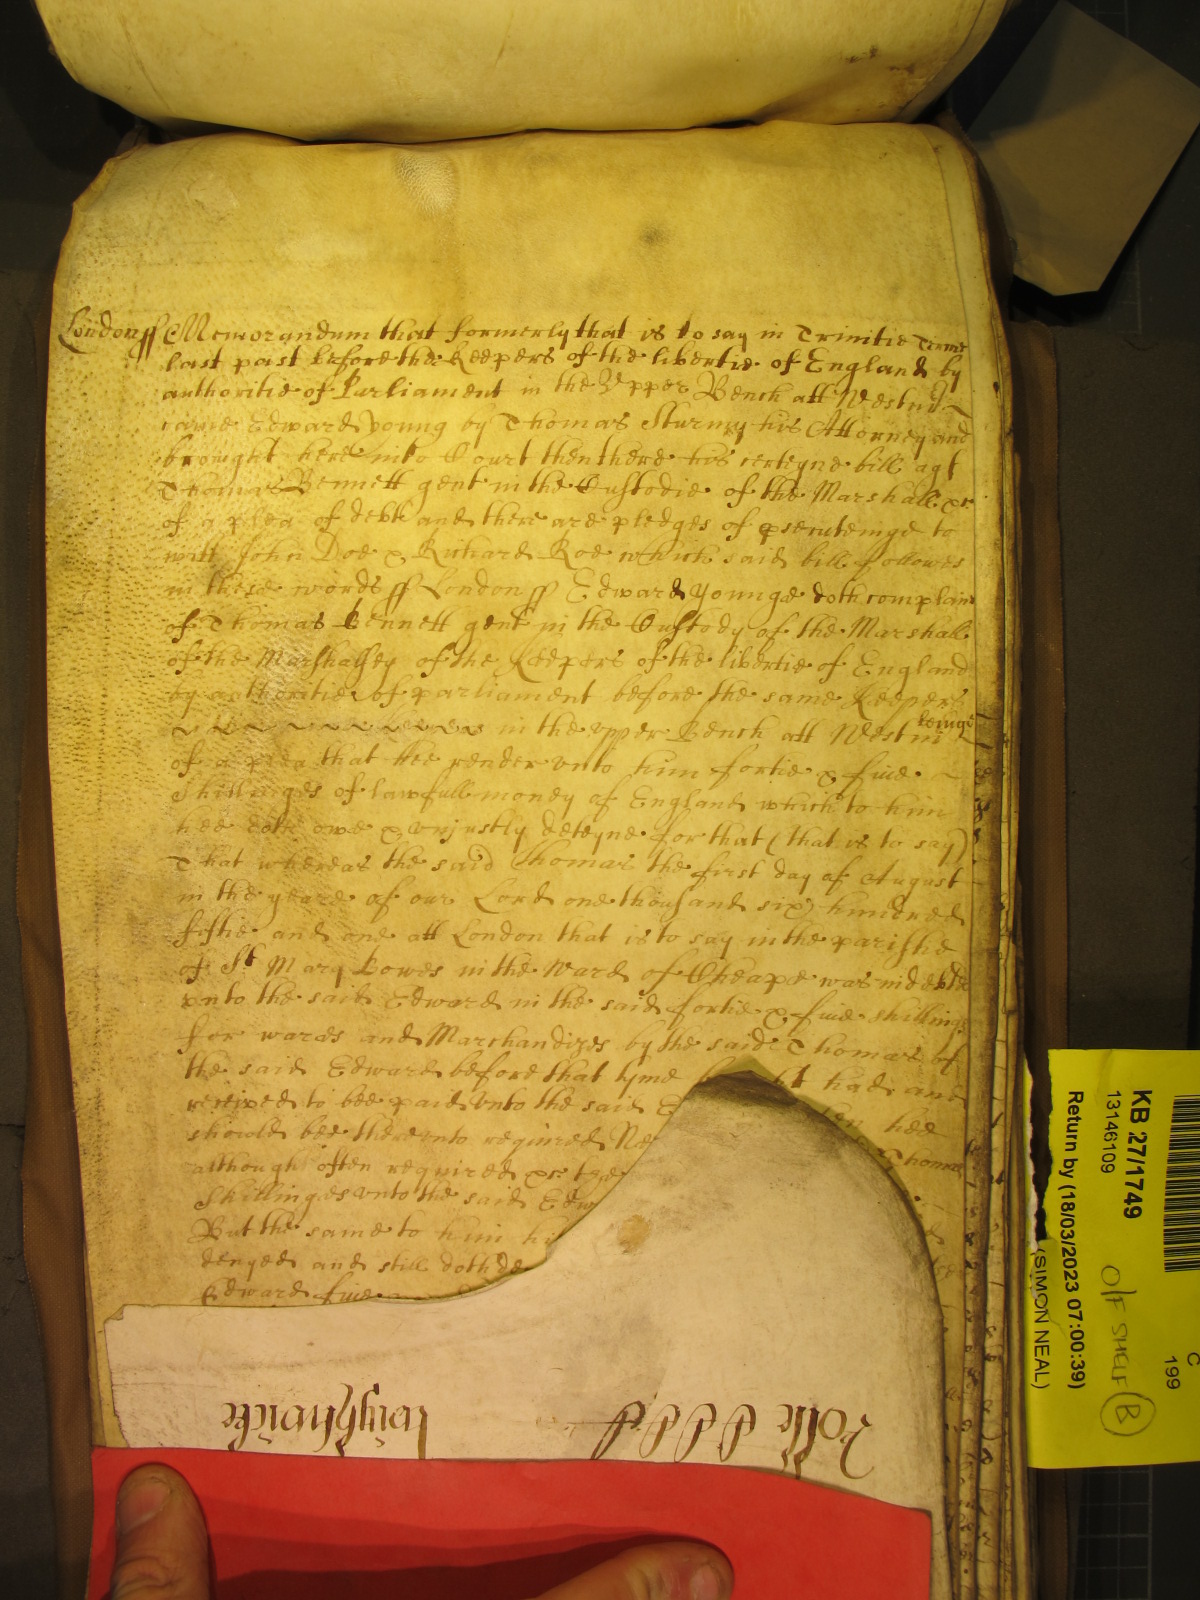 London ss Memorandum that formerly that is to say in Trinitie Terme
last past before the Keepers of the libertie of England by
authoritie of Parliament in the Vpper Bench att Westm
came Edward Young by Thomas Sturmy his Attorney and
brought here into Court then there his certeyne bill agt
Thomas Bennett gent in the Custodie of the Marshall &c
of a plea of debt and there are pledges of psecuteinge to
witt John Doe & Richard Roe which said bill followes
in these words ss London ss Edward Younge doth complaine
of Thomas Bennett gent in the Custody of the Marshall
of the Marshalsey of the Keepers of the libertie of England
by authoritie of parliament before the same Keepers
in the vpper Bench att Westm beinge
of a plea that hee render vnto him fortie & five
Shillinges of lawfull money of England which to him
hee doth owe & vnjustly deteyne for that (that is to say)
That whereas the said Thomas the first day of August
in the yeare of our Lord one thousand six hundred
fiftie and one att London that is to say in the parishe
of St Mary Bowe in the Ward of Cheape was indebted
vnto the said Edward in the said fortie & five shillings
for wares and Marchandizes by the said Thomas of
the said Edward before that tyme had and
received to bee paid vnto the said hee
should bee therevnto required
although often required &c Thomas
Shillinges vnto the said Edw
But the same to him
denyed and still doth de
Edward five
Rolle
KB 27/1749
13146109
Return by (18/03/2023 07:00:39)
(SIMON NEAL)
O/F SHELF B
C
199